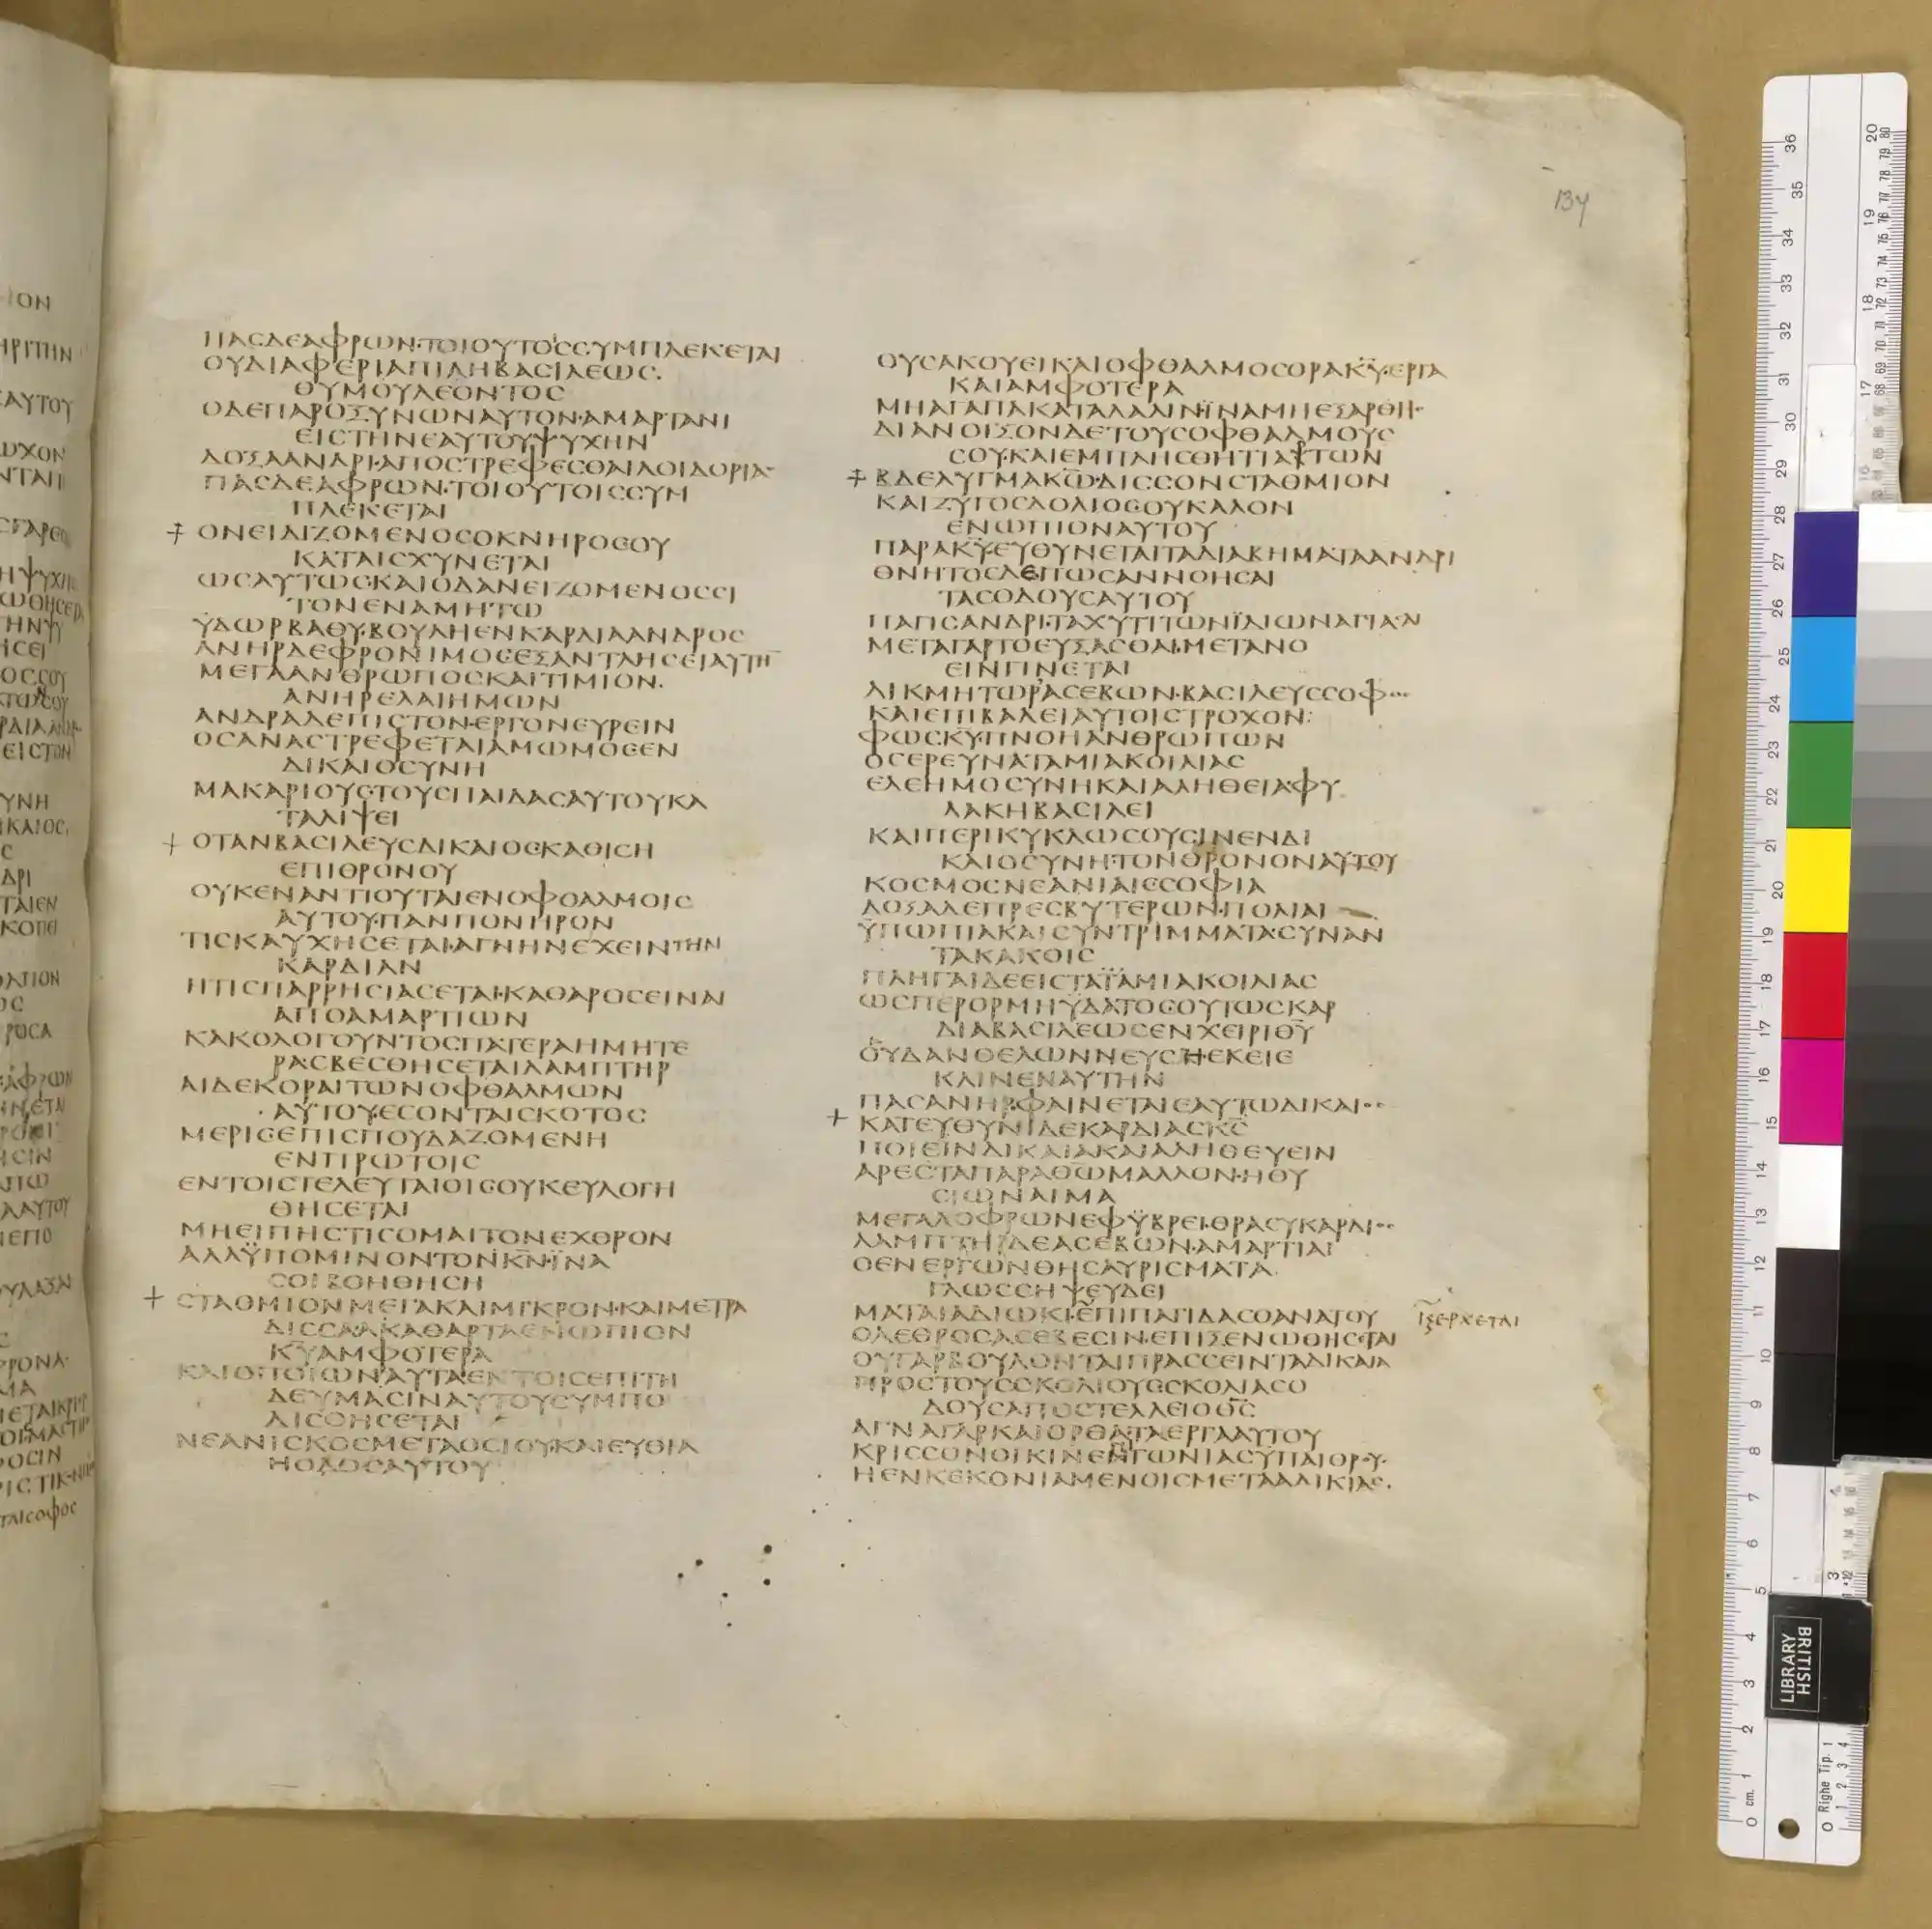 134
ΠΑϹΔΕΑΦΡΩΝ·ΤΟΙΟΥΤΟΙϹϹΥΜΠΛΕΚΕΤΑΙ
ΟΥΔΙΑΦΕΡΙΑΠΙΛΗΒΑϹΙΛΕΩϹ·
ΘΥΜΟΥΛΕΟΝΤΟϹ
ΟΔΕΠΑΡΟΞΥΝΩΝΑΥΤΟΝ·ΑΜΑΡΤΑΝΙ
ΕΙϹΤΗΝΕΑΥΤΟΥΨΥΧΗΝ
ΔΟΞΑΑΝΔΡΙ·ΑΠΟϹΤΡΕΦΕϹΘΑΙΛΟΙΔΟΡΙΑ·
ΠΑϹΔΕΑΦΡΩΝ·ΤΟΙΟΥΤΟΙϹϹΥΜ
ΠΛΕΚΕΤΑΙ
ΟΝΕΙΔΙΖΟΜΕΝΟϹΟΚΝΗΡΟϹΟΥ
ΚΑΤΑΙϹΧΥΝΕΤΑΙ
ΩϹΑΥΤΩϹΚΑΙΟΔΑΝΕΙΖΟΜΕΝΟϹϹΙ
ΤΟΝΕΝΑΜΗΤΩ
ΥΔΩΡΒΑΘΥ·ΒΟΥΛΗΕΝΚΑΡΔΙΑΑΝΔΡΟϹ
ΑΝΗΡΔΕΦΡΟΝΙΜΟϹΕΞΑΝΤΛΗϹΕΙΑΥΤΗ̅
ΜΕΓΑΑΝΘΡΩΠΟϹΚΑΙΤΙΜΙΟΝ·
ΑΝΗΡΕΛΑΙΗΜΩΝ
ΑΝΔΡΑΔΕΠΙϹΤΟΝ·ΕΡΓΟΝΕΥΡΕΙΝ
ΟϹΑΝΑϹΤΡΕΦΕΤΑΙΑΜΩΜΟϹΕΝ
ΔΙΚΑΙΟϹΥΝΗ
ΜΑΚΑΡΙΟΥϹΤΟΥϹΠΑΙΔΑϹΑΥΤΟΥΚΑ
ΤΑΛΙΨΕΙ
ΟΤΑΝΒΑϹΙΛΕΥϹΔΙΚΑΙΟϹΚΑΘΙϹΗ
ΕΠΙΘΡΟΝΟΥ
ΟΥΚΕΝΑΝΤΙΟΥΤΑΙΕΝΟΦΘΑΛΜΟΙϹ
ΑΥΤΟΥ·ΠΑΝΠΟΝΗΡΟΝ
ΤΙϹΚΑΥΧΗϹΕΤΑΙ·ΑΓΝΗΝΕΧΕΙΝΤΗΝ
ΚΑΡΔΙΑΝ
ΗΤΙϹΠΑΡΡΗϹΙΑϹΕΤΑΙ·ΚΑΘΑΡΟϹΕΙΝΑΙ
ΑΠΟΑΜΑΡΤΙΩΝ
ΚΑΚΟΛΟΓΟΥΝΤΟϹΠΑΤΕΡΑΗΜΗΤΕ
ΡΑ·ϹΒΕϹΘΗϹΕΤΑΙΛΑΜΠΤΗΡ
ΑΙΔΕΚΟΡΑΙΤΩΝΟΦΘΑΛΜΩΝ
ΑΥΤΟΥ·ΕϹΟΝΤΑΙϹΚΟΤΟϹ
ΜΕΡΙϹΕΠΙϹΠΟΥΔΑΖΟΜΕΝΗ
ΕΝΠΡΩΤΟΙϹ
ΕΝΤΟΙϹΤΕΛΕΥΤΑΙΟΙϹΟΥΚΕΥΛΟΓΗ
ΘΗϹΕΤΑΙ
ΜΗΕΙΠΗϹΤΙϹΟΜΑΙΤΟΝΕΧΘΡΟΝ
ΑΛΛΫΠΟΜΙΝΟΝΤΟΝΚ̅Ν̅·ΪΝΑ
ϹΟΙΒΟΗΘΗϹΗ
ϹΤΑΘΜΙΟΝΜΕΓΑΚΑΙΜΙΚΡΟΝ·ΚΑΙΜΕΤΡΑ
ΔΙϹϹΑ·ΑΚΑΘΑΡΤΑΕΝΩΠΙΟΝ
Κ̅Υ̅ΑΜΦΟΤΕΡΑ
ΚΑΙΟΠΟΙΩΝΑΥΤΑΕΝΤΟΙϹΕΠΙΤΗ
ΔΕΥΜΑϹΙΝΑΥΤΟΥϹΥΜΠΟ
ΔΙϹΘΗϹΕΤΑΙ
ΝΕΑΝΙϹΚΟϹΜΕΤΑΟϹΙΟΥ·ΚΑΙΕΥΘΙΑ
ΗΟΔΟϹΑΥΤΟΥ
ΟΥϹΑΚΟΥΕΙΚΑΙΟΦΘΑΛΜΟϹΟΡΑΚ̅Υ̅·ΕΡΓΑ
ΚΑΙΑΜΦΟΤΕΡΑ
ΜΗΑΓΑΠΑΚΑΤΑΛΑΛΙΝ·ΪΝΑΜΗΕΞΑΡΘΗ·
ΔΙΑΝΟΙΞΟΝΔΕΤΟΥϹΟΦΘΑΛΜΟΥϹ
ϹΟΥ·ΚΑΙΕΜΠΛΗϹΘΗΤΙΑΡΤΩΝ
ΒΔΕΛΥΓΜΑΚ̅Ω̅·ΔΙϹϹΟΝϹΤΑΘΜΙΟΝ
ΚΑΙΖΥΓΟϹΔΟΛΙΟϹΟΥΚΑΛΟΝ
ΕΝΩΠΙΟΝΑΥΤΟΥ
ΠΑΡΑΚ̅Υ̅·ΕΥΘΥΝΕΤΑΙΤΑΔΙΑΒΗΜΑΤΑΑΝΔΡΙ
ΘΝΗΤΟϹΔΕΠΩϹΑΝΝΟΗϹΑΙ
ΤΑϹΟΔΟΥϹΑΥΤΟΥ
ΠΑΓΙϹΑΝΔΡΙ·ΤΑΧΥΤΙΤΩΝΪΔΙΩΝΑΓΙΑϹΑΙ
ΜΕΤΑΓΑΡΤΟΕΥΞΑϹΘΑΙ·ΜΕΤΑΝΟ
ΕΙΝΓΙΝΕΤΑΙ
ΛΙΚΜΗΤΩΡΑϹΕΒΩΝ·ΒΑϹΙΛΕΥϹϹΟΦ
ΚΑΙΕΠΙΒΑΛΕΙΑΥΤΟΙϹΤΡΟΧΟΝ:
ΦΩϹΚ̅Υ̅·ΠΝΟΗΑΝΘΡΩΠΩΝ
ΟϹΕΡΕΥΝΑΤΑΜΙΑΚΟΙΛΙΑϹ
ΕΛΕΗΜΟϹΥΝΗΚΑΙΑΛΗΘΕΙΑ·ΦΥ
ΛΑΚΗΒΑϹΙΛΕΙ
ΚΑΙΠΕΡΙΚΥΚΛΩϹΟΥϹΙΝΕΝΔΙ
ΚΑΙΟϹΥΝΗ·ΤΟΝΘΡΟΝΟΝΑΥΤΟΥ
ΚΟϹΜΟϹΝΕΑΝΙΑΙϹϹΟΦΙΑ
ΔΟΞΑΔΕΠΡΕϹΒΥΤΕΡΩΝ·ΠΟΛΙΑΙ
ΫΠΩΠΙΑΚΑΙϹΥΝΤΡΙΜΜΑΤΑ·ϹΥΝΑΝ
ΤΑΚΑΚΟΙϹ
ΠΛΗΓΑΙΔΕΕΙϹΤΑΤΑΜΙΑΚΟΙΛΙΑϹ
ΩϹΠΕΡΟΡΜΗΫΔΑΤΟϹΟΥΤΩϹΚΑΡ
ΔΙΑΒΑϹΙΛΕΩϹΕΝΧΕΙΡΙΘ̅Υ̅
ΟΥΔΑΝΘΕΛΩΝΝΕΥϹΗΕΚΕΙΕ
ΚΛΙΝΕΝΑΥΤΗΝ
ΠΑϹΑΝΗΡΦΑΙΝΕΤΑΙΕΑΥΤΩΔΙΚΑΙ
ΚΑΤΕΥΘΥΝΙΔΕΚΑΡΔΙΑϹΚ̅Ϲ̅
ΠΟΙΕΙΝΔΙΚΑΙΑΚΑΙΑΛΗΘΕΥΕΙΝ
ΑΡΕϹΤΑΠΑΡΑΘ̅Ω̅ΜΑΛΛΟΝ·ΗΘΥ
ϹΙΩΝΑΙΜΑ
ΜΕΓΑΛΟΦΡΩΝΕΦΫΒΡΕΙ·ΘΡΑϹΥΚΑΡΔΙ
ΛΑΜΠΤΗΡΔΕΑϹΕΒΩΝ·ΑΜΑΡΤΙΑΙ
ΟΕΝΕΡΓΩΝΘΗϹΑΥΡΙϹΜΑΤΑ
ΓΛΩϹϹΗΨΕΥΔΕΙ
ΜΑΤΑΙΑΔΙΩΚΙ·ΕΠΙΠΑΓΙΔΑϹΘΑΝΑΤΟΥ
ΟΛΕΘΡΟϹΑϹΕΒΕϹΙΝ·ΕΠΙΞΕΝΩΘΗϹΕΤΑΙ
ΟΥΓΑΡΒΟΥΛΟΝΤΑΙΠΡΑϹϹΕΙΝΤΑΔΙΚΑΙΑ
ΠΡΟϹΤΟΥϹϹΚΟΛΙΟΥϹϹΚΟΛΙΑϹΟ
ΔΟΥϹΑΠΟϹΤΕΛΛΕΙΟΘ̅Ϲ̅
ΑΓΝΑΓΑΡΚΑΙΟΡΘΑΤΑΕΡΓΑΑΥΤΟΥ
ΚΡΙϹϹΟΝΟΙΚΙΝΕΠΙΓΩΝΙΑϹΫΠΑΙΘΡΟΥ·
ΗΕΝΚΕΚΟΝΙΑΜΕΝΟΙϹΜΕΤΑΑΔΙΚΙΑϹ·
BRITISH
LIBRARY